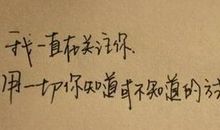 我一直在关注你.
用一切你知道或不知道的方